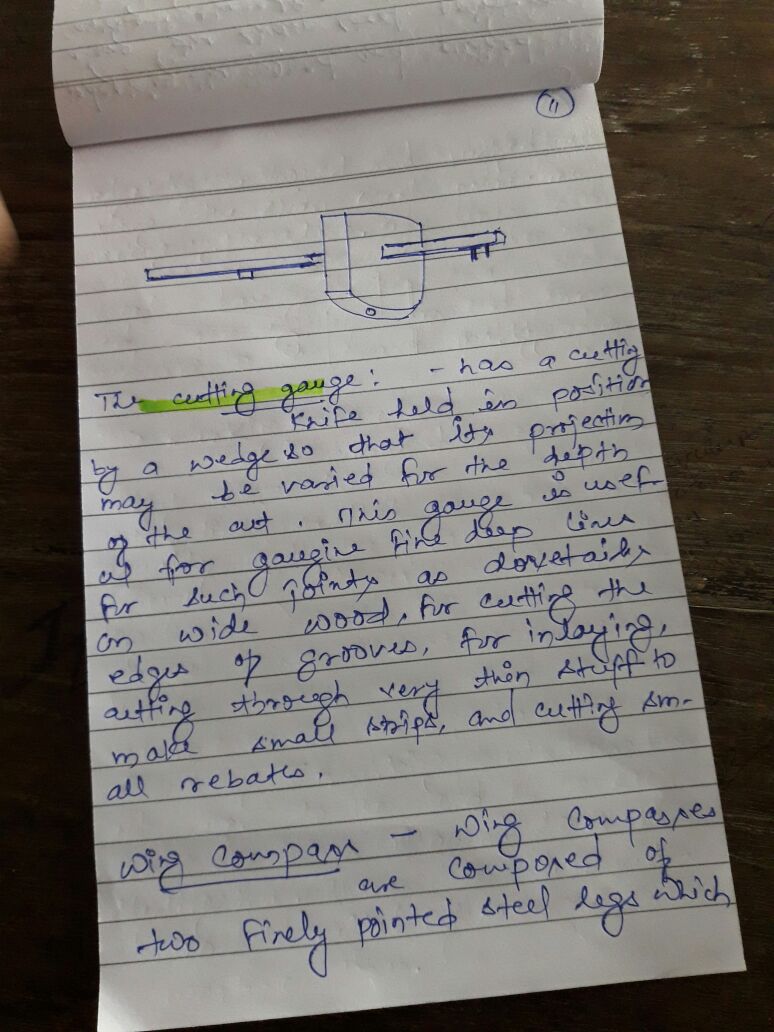 11
The cutting gauge: - has a cuttig
Knife held in position
by a wedge so that its projection
may be varied for the depth
of the cut. This gauge is usef-
ul for gaugine fine deep lines
for such joints as dovetails
on wide wood, for cutting the
edges of grooves, for inlaying,
cutting through very thin stuff to
make small strips, and cutting sm-
all rebates.
Wing Compass - Wing Compasses
are composed of
two finely pointed steel legs which